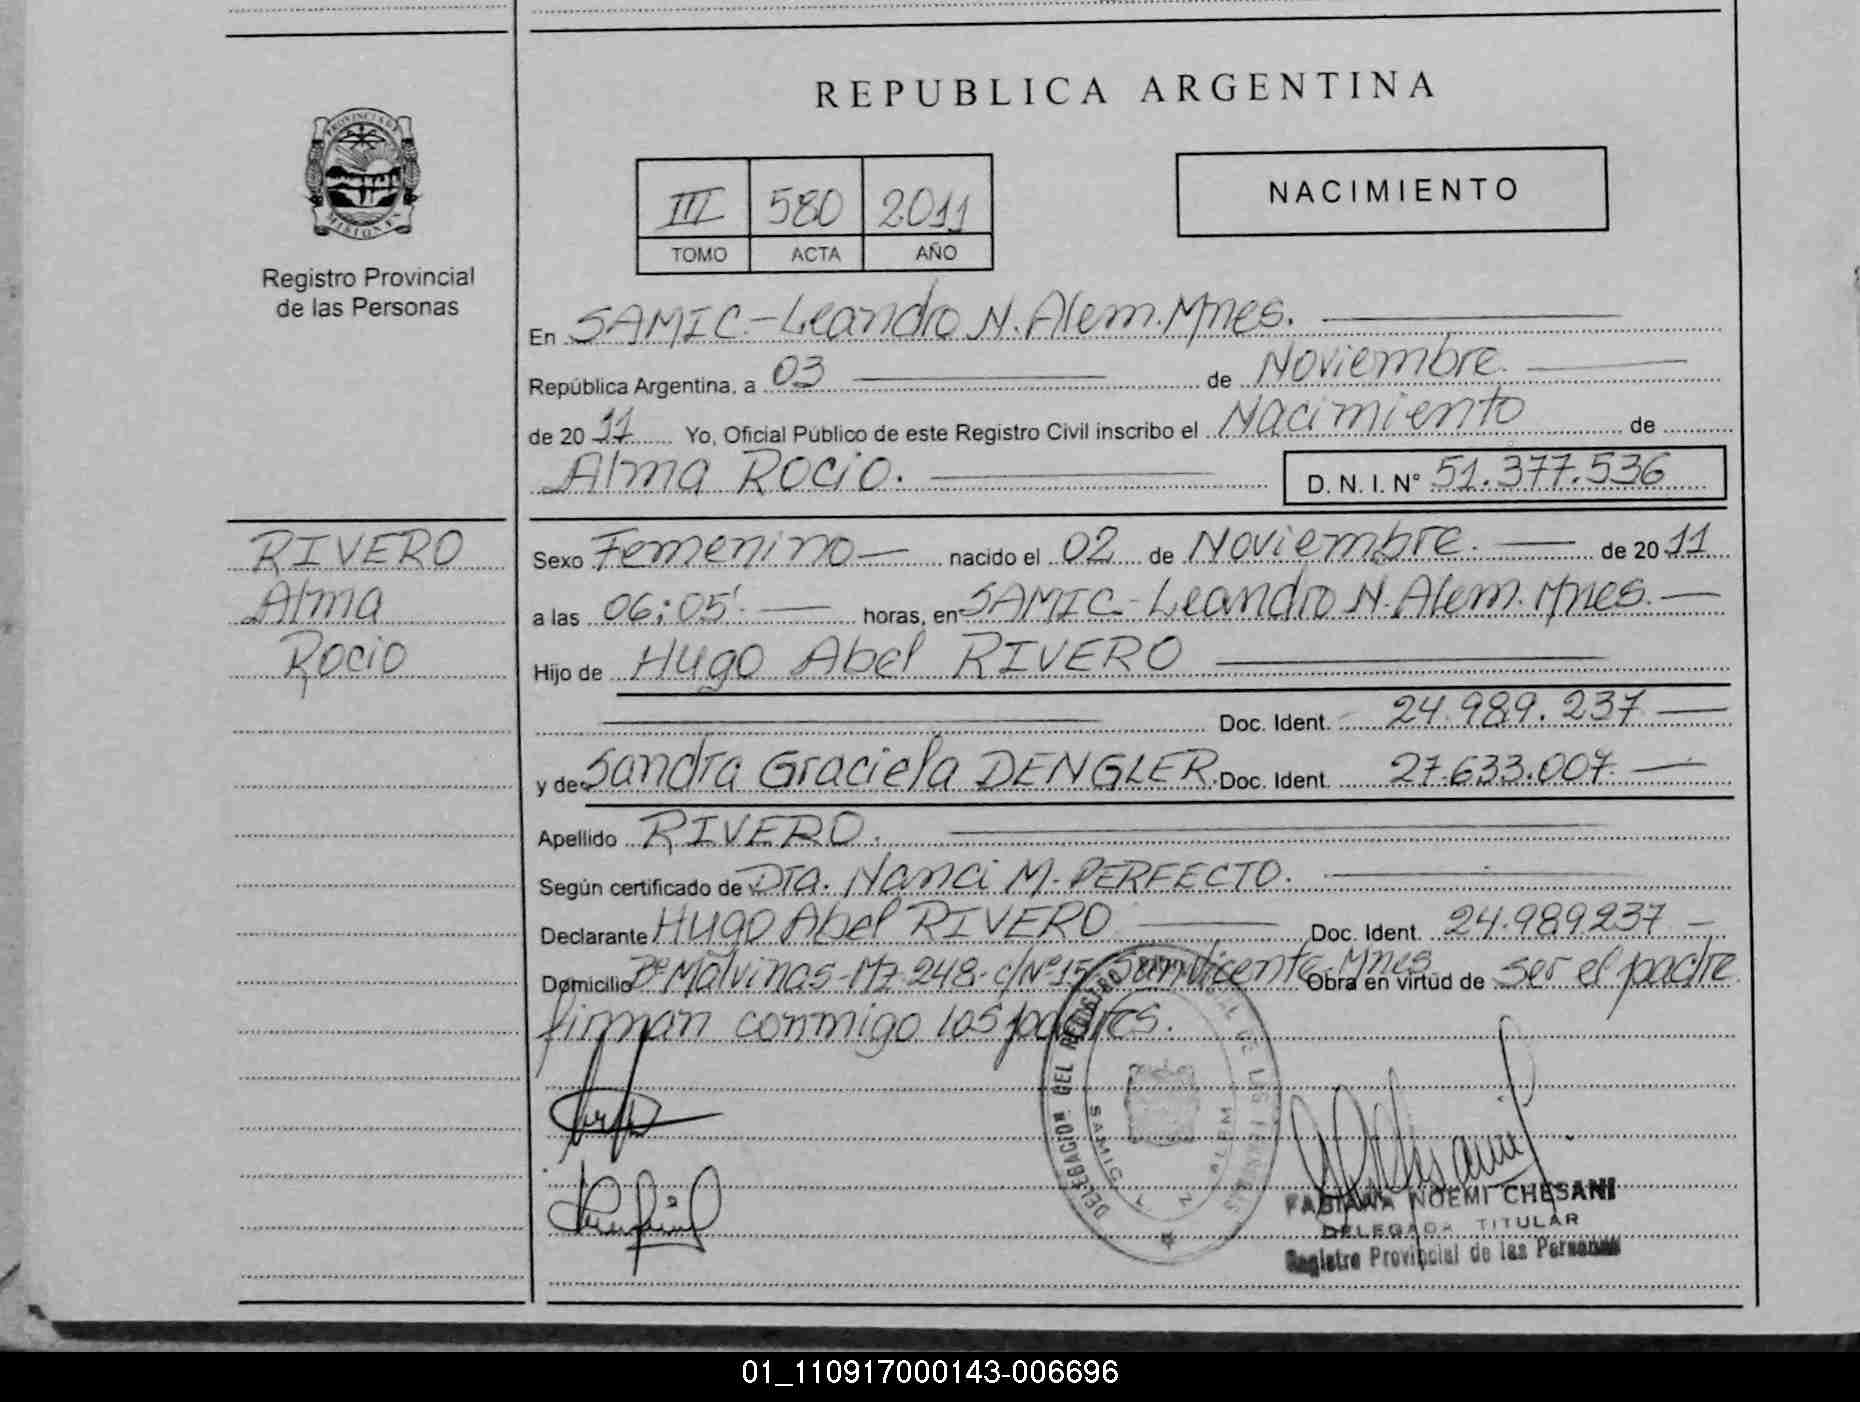 REPUBLICA ARGENTINA
PROVINCIA DE
MISIONES
Registro Provincial
de las Personas
III 580 2011
TOMO ACTA AÑO
NACIMIENTO
En SAMIC.-Leandro N. Alem. Mnes.
República Argentina, a 03 de Noviembre.
de 20 11 Yo, Oficial Público de este Registro Civil inscribo el Nacimiento de
Alma Rocio. D. N. I. N° 51.377.536
RIVERO
Alma
Rocio
Sexo Femenino nacido el 02 de Noviembre. de 20 11
a las 06:05' horas, en SAMIC-Leandro N. Alem. Mnes.
Hijo de Hugo Abel RIVERO
Doc. Ident. 24.989.237
y de Sandra Graciela DENGLER. Doc. Ident. 27.633.007
Apellido RIVERO.
Según certificado de Dra. Nanci M. PERFECTO.
Declarante Hugo Abel RIVERO Doc. Ident. 24.989237
Domicilio B° Malvinas-Mz 248-c/N°15 San Vicente-Mnes Obra en virtud de ser el padre
firman conmigo los padres.
DELEGACION DEL REGISTRO
SAMIC L. N. ALEM
FABIANA NOEMI CHESANI
DELEGADA TITULAR
Registro Provincial de las Personas
01_110917000143-006696